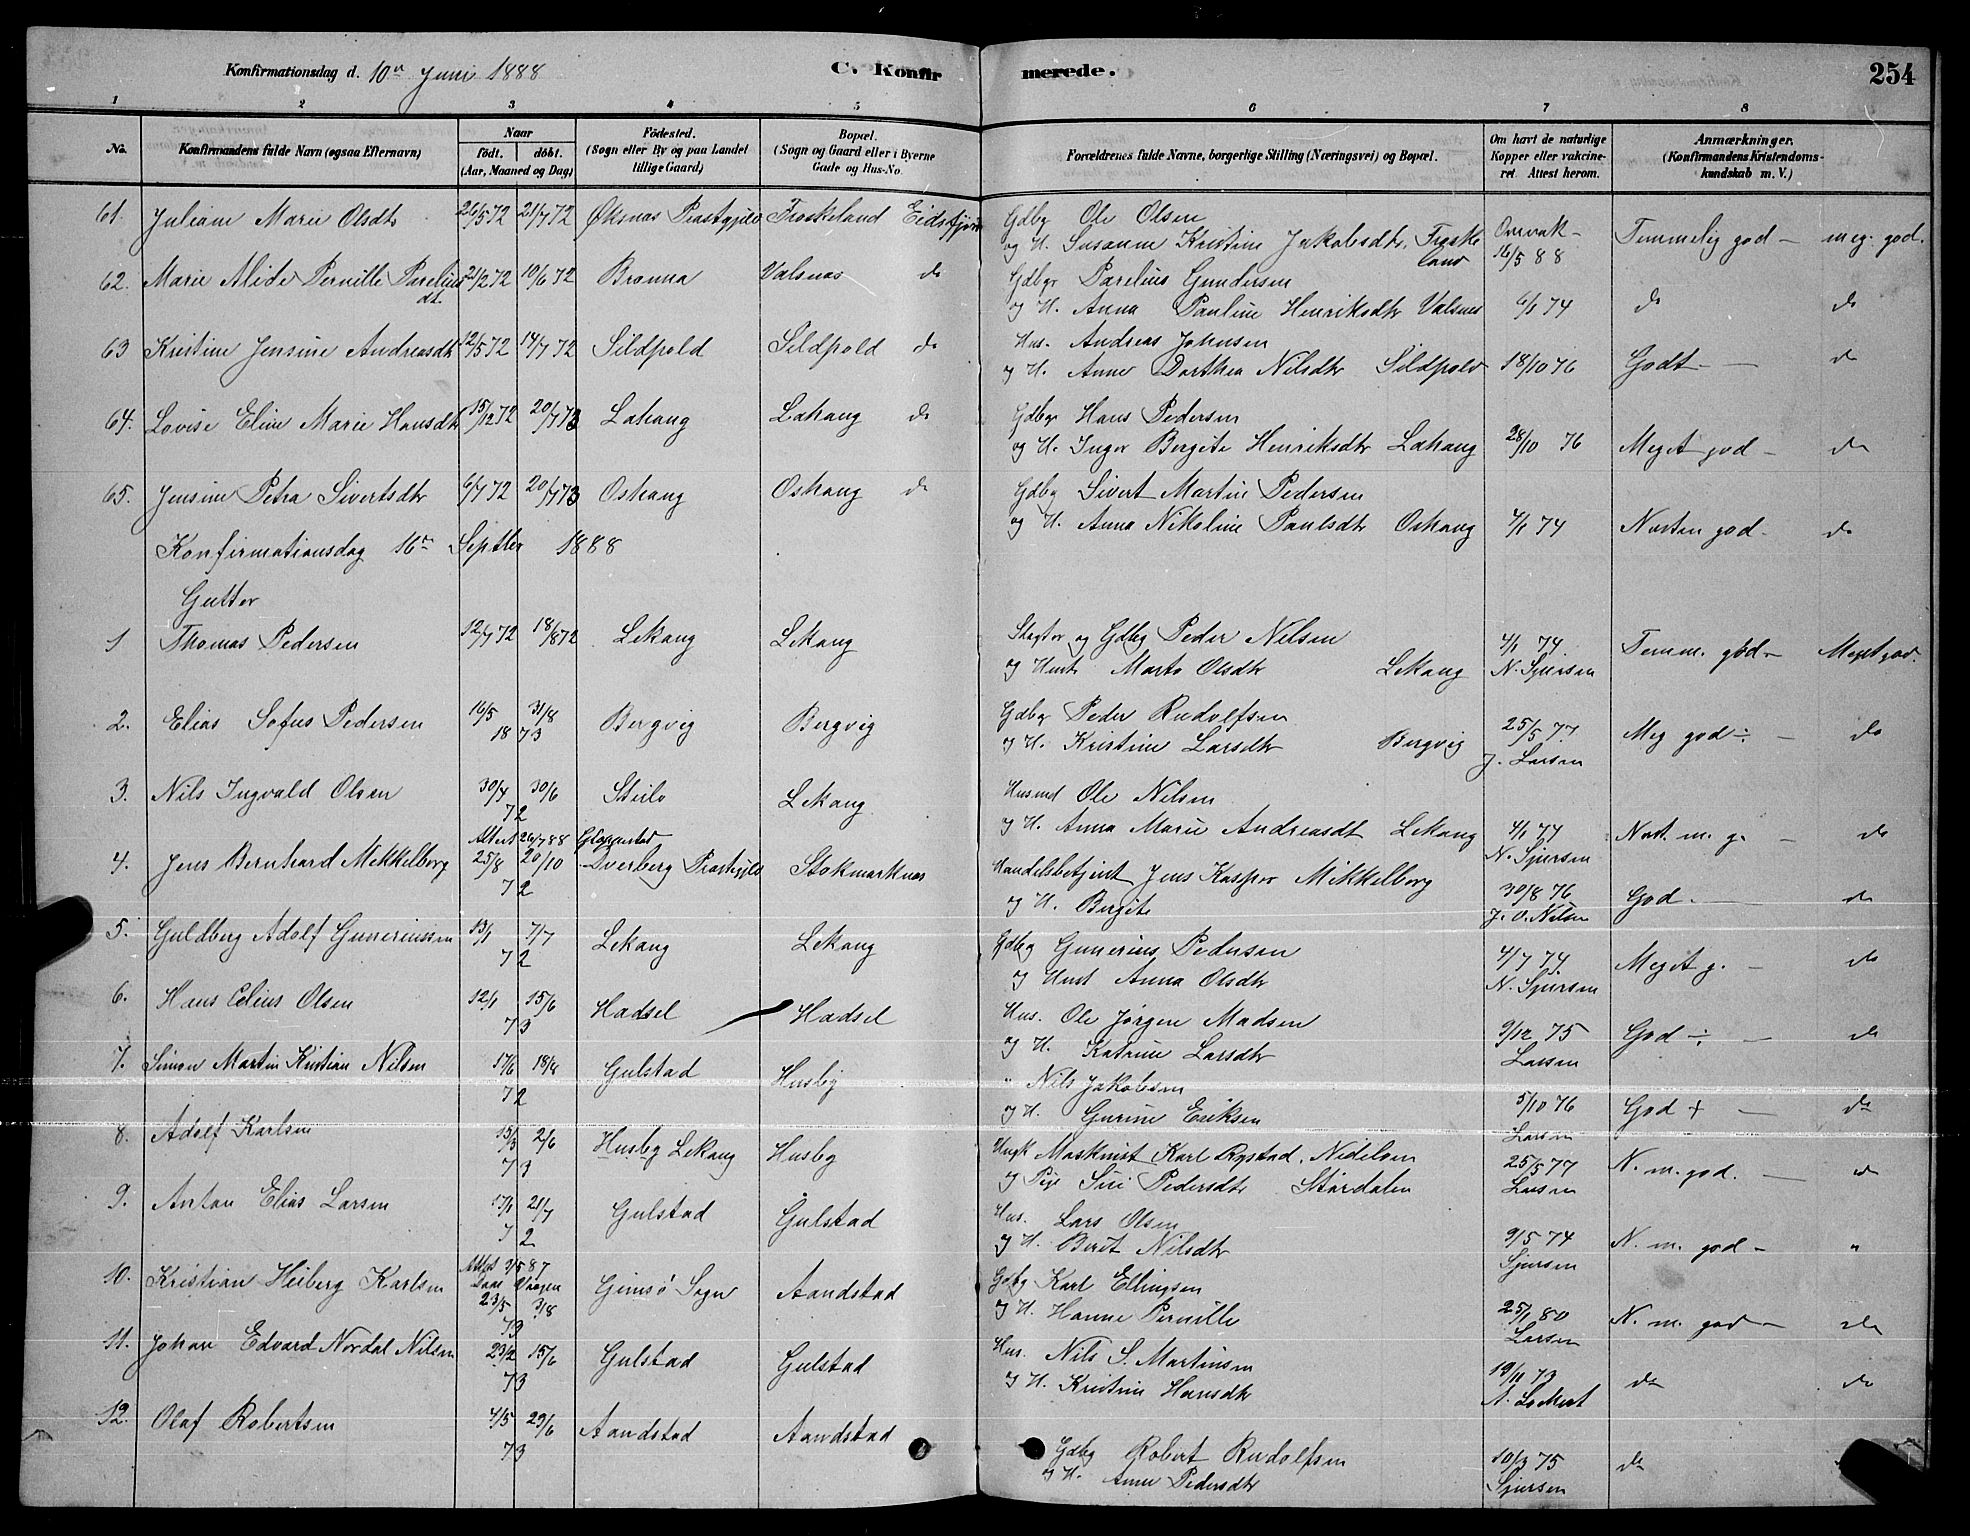 Konfirmationsdag d. 10de Juni 1888 C. Konfirmerede. 254
1 2 3 4 5 6 7 8
No. Konfirmandens fulde Navn (ogsaa Efternavn) Naar födt. döbt. (Aar, Maaned og Dag) Födested. (Sogn eller By og paa Landet tillige Gaard) Bopæl. (Sogn og Gaard eller i Byerne Gade og Hus-No. Forældrenes fulde Navne, borgerlige Stilling (Næringsvei) og Bopæl. Om havt de naturlige Kopper eller vakcineret. Attest herom. Anmærkninger. (Konfirmandens Kristendomskundskab m. V.)
61. Juliane Marie Olsdtr 26/5 72 21/7 72 Øksnæs Præstgjeld Froskeland Eidsfjord Gdbg Ole Olsen
og H. Susanne Kristine Jakobsdtr. Froskeland 16/5 88 Temmelig god - meg. god.
62. Marie Alide Pernille Pareliusdt. 21/2 72 10/6 72 Brønna Valsnæs do Gdbgr Parelius Gundersen
og H. Anna Pauline Henriksdtr Valsnes 6/1 74 do do
63 Kristine Jensine Andreasdtr 12/5 72 14/7 72 Sildpold Sildpold do Hus. Andreas Johnsen
og H. Anne Dorthea Nilsdtr Sildpold 18/10 76 Godt - do
64. Lovise Eline Marie Hansdtr 15/12 72 20/7 73 Lahaug Lahaug do Gdbgr Hans Pedersen
og H. Inger Bergite Henriksdtr Lahaug 28/10 76 Meget god - do
65. Jensine Petra Sivertsdtr 6/7 72 20/7 73 Oshaug Oshaug do Gdbg Sivert Martin Pedersen
og H. Anna Nikoline Paulsdtr Oshaug 4/1 74 Næsten god - do
Konfirmationsdag 16de Septbr 1888
Gutter
1 Thomas Pedersen 12/7 72 18/8 72 Lekang Lekang og Gdbg Peder Nilsen
og Hust. Marta Olsdtr Lekang 4/1 74. N. Sjursen Temm. god - Meget god.
2. Elias Sofus Pedersen 16/5 31/8 1873 Bergvig Bergvig Gdbgr Peder Rudolfsen
og H. Kristine Larsdtr Bergvig 25/5 77 J. Larsen Meg god ÷ - do
3. Nils Ingvald Olsen 30/4 30/6 72 Steilo Lekang Husmd Ole Nilsen
og H. Anna Marie Andreasdt Lekang 4/1 74 N. Sjursen Næst. m. g. - do
4. Jens Bernhard Mikkelborg Attest 26/7 88 25/8 20/10 72 Dverberg Præstegjeld Stokmarknæs Handelsbetjent Jens Kasper Mikkelborg
og H. Bergite 30/8 76 J. O. Nilsen God. - do
5. Guldberg Adolf Gunneriussen 13/1 7/7 72 Lekang Lekang Gdbg Gunerius Pedersen
og Hust Anna Olsdtr 4/7 74. N. Sjursen Meget g. - do
6. Hans Edius Olsen 12/1 15/6 73 Hadsel Hadsel Hus. Ole Jørgen Madsen
og H. Katrine Larsdtr 9/12 75 Larsen God ÷ - do
7. Simon Martin Kristian Nilsen 17/6 18/8 72 Gulstad Husby " Nils Jakobsen
og H. Gurine Eriksen 5/10 76 Larsen God + - do
8. Adolf Karlsen 15/3 2/6 73 Husby Lekang Husby Ungk Maskinist Karl Rystad, Nidelven
og Pige Siri Pedersdtr Størdalen 25/5 77 Larsen N. m. god. - do
9. Anton Elias Larsen 17/1 21/7 72 Gulstad Gulstad Hus. Lars Olsen
og H. Berit Nilsdtr 9/5 74 Sjursen N. m. god - "
10. Kristian Heiberg Karlsen Attest 2/5 87 Vaagen 23/5 3/8 73 Gimsø Sogn Aandstad Gdbg Karl Ellingsen
og H. Hanna Pernille 25/1 80 Larsen N. m. god - do
11. Johan Edvard Nordal Nilsen 23/2 15/6 73 Gulstad Gulstad Hus. Nils S. Martinsen
og H. Kristine Hansdtr 19/11 73 A. Lockert do do
12. Olaf Robertsen 4/5 29/6 73 Aandstad Aandstad Gdbg Robert Rudolfsen
og H. Anne Pedersdtr 10/3 75 Sjursen do